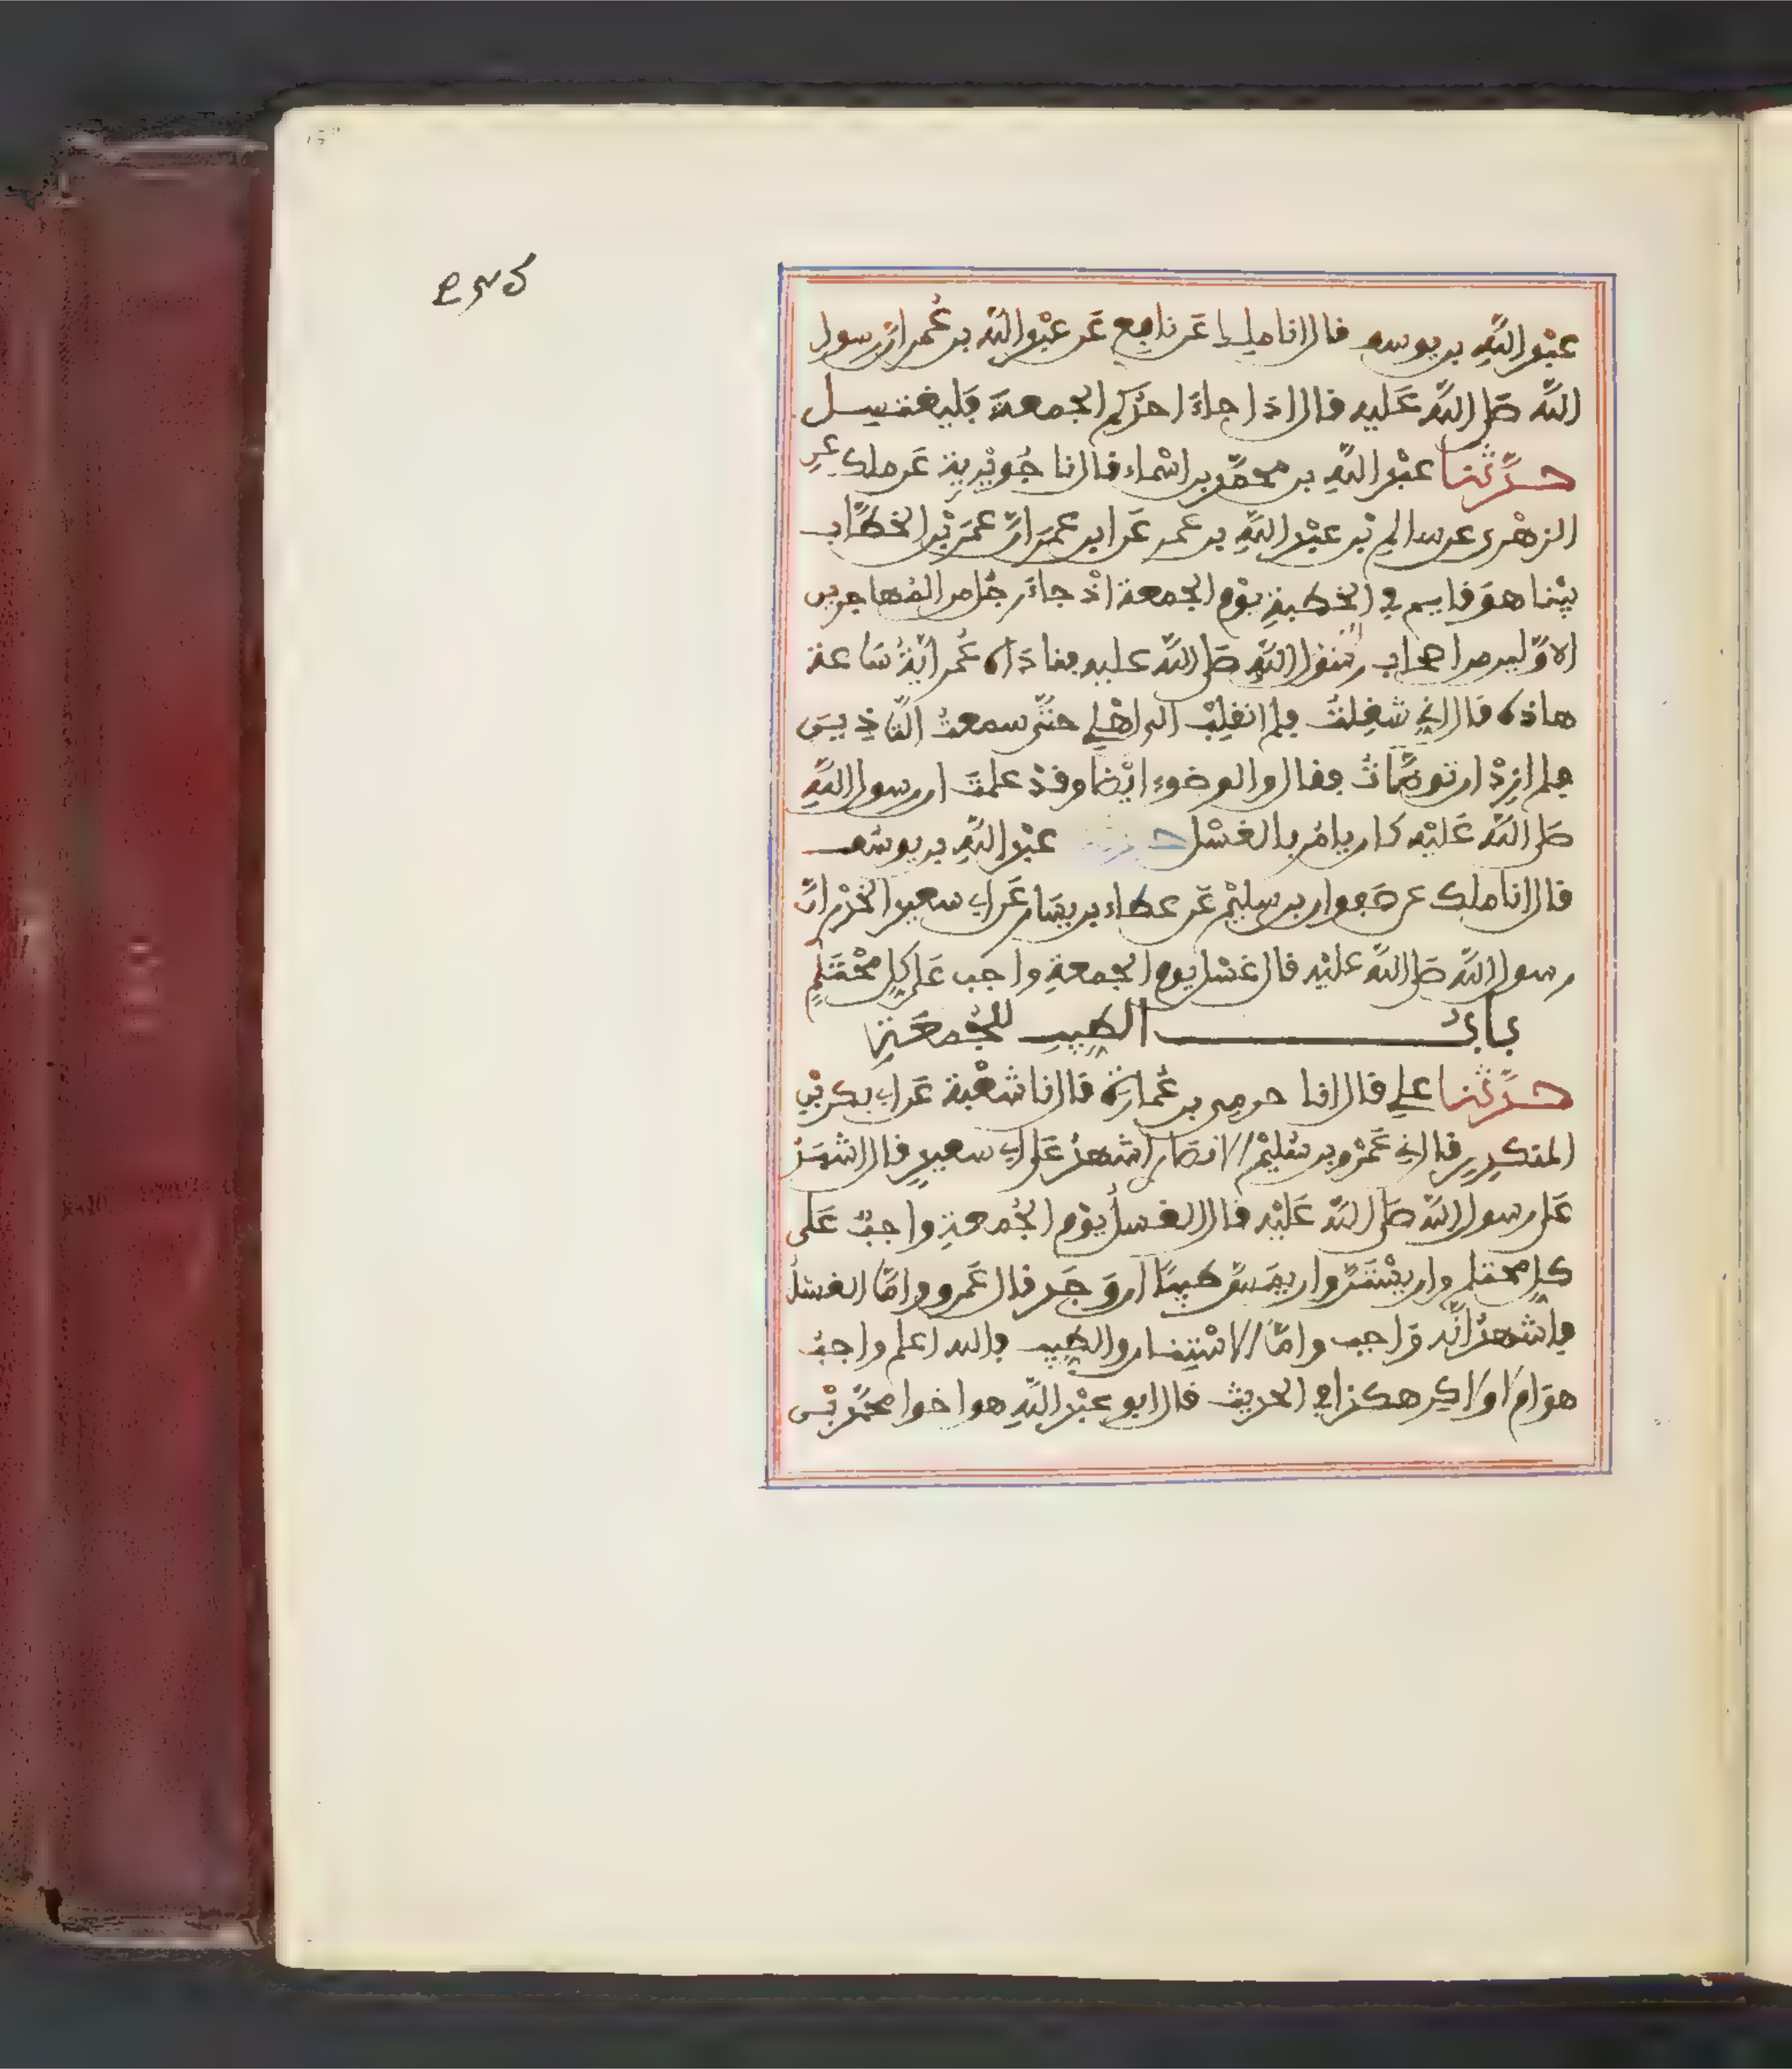 عبد الله بن يوسف قال انا ملك عن نافع عن عبد الله بن عمر ان رسول
الله صلى الله عليه قال اذا جاء احدكم الجمعة فليغتسل
حدثنا عبد الله بن محمد بن اسماء قال انا جويرية عن ملك عن
الزهرى عن سالم بن عبد الله بن عمر عن ابن عمر ان عمر بن الخطاب
بينا هو قايم في الخطبة يوم الجمعة اذ جاء رجل من المهاجرين
الاولين من اصحاب رسول الله صلى الله عليه فناداه عمر اية ساعة
هاذه قال اني شغلت فلم انقلب الى اهلي حتى سمعت التاذين
فلم ازد ان توضات فقال والوضوء ايضا وقد علمت ان رسول الله
صلى الله عليه كان يامر بالغسل حدثنا عبد الله بن يوسف
قال انا ملك عن صفوان بن سليم عن عطاء بن يسار عن ابي سعيد الخدر ان
رسول الله صلى الله عليه قال غسل يوم الجمعة واجب على كل محتلم
باب الطيب للجمعة
حدثنا علي قال انا حرمي بن عمارة قال انا شعبة عن ابي بكر بن
المنكدر قال اني عمرو بن سليم الانصار اشهد على ابي سعيد قال اشهد
على رسول الله صلى الله عليه قال الغسل يوم الجمعة واجب على
كل محتلم وان يستن وان يمس طيبا ان وجد قال عمرو واما الغسل
فاشهد انه واجب واما الاستنان والطيب فالله اعلم واجب
هو ام لا ولاكن هكذا في الحديث قال ابو عبد الله هو اخوا محمد بن